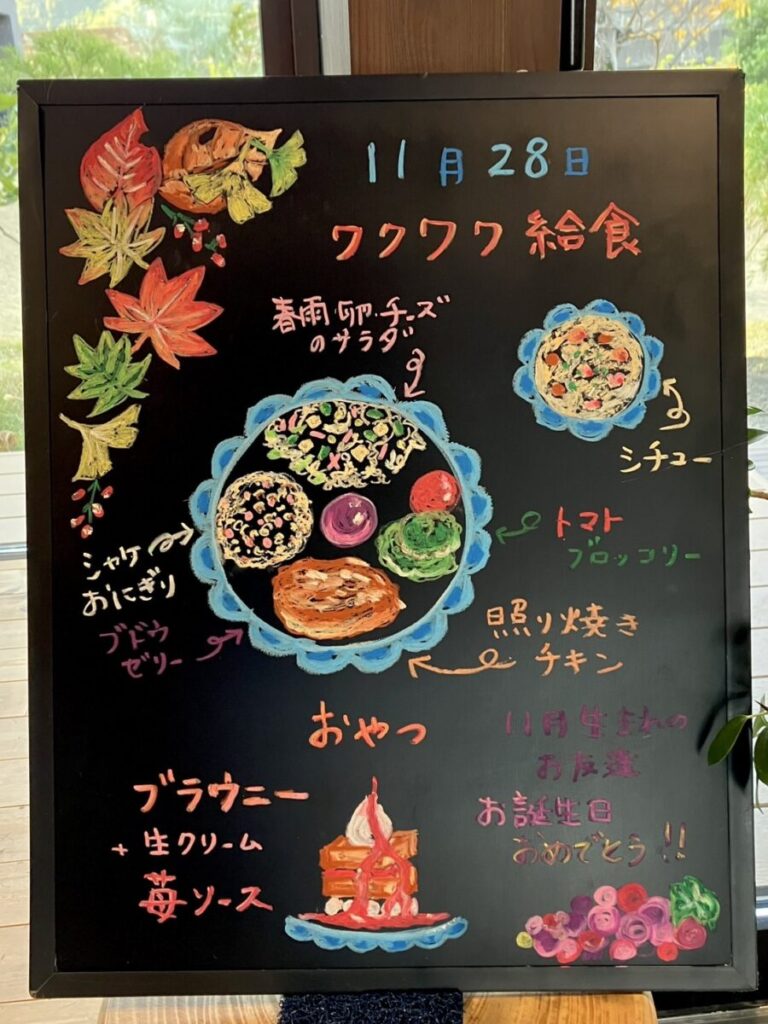 11月28日
ワクワク給食
春雨・卵・チーズ
のサラダ
シチュー
シャケ
おにぎり
トマト
ブロッコリー
ブドウ
ゼリー
照り焼き
チキン
おやつ
ブラウニー
+ 生クリーム
苺ソース
11月生まれの
お友達
お誕生日
おめでとう!!